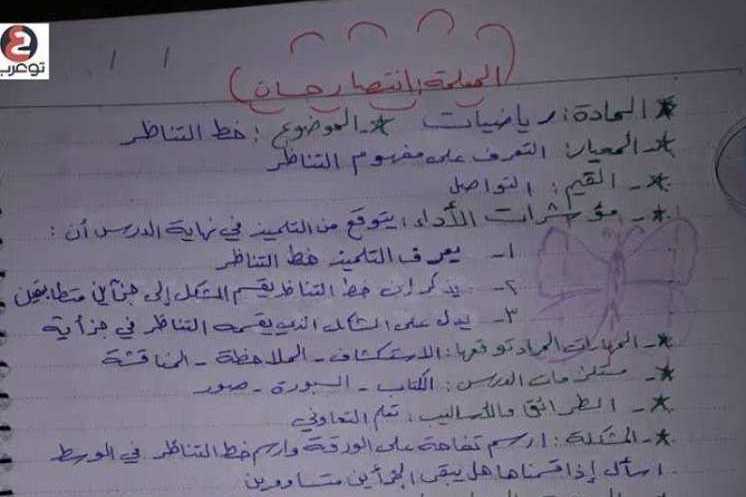 توعرب
(المعلمة: انتصار حسان)
*المادة: رياضيات *- الموضوع: خط التناظر
*- المعيار: التعرف على مفهوم التناظر
*- القيم: التواصل
*- مؤشرات الأداء: يتوقع من التلميذ في نهاية الدرس أن:
١- يعرف التلميذ خط التناظر
٢- يذكر ان خط التناظر يقسم الشكل إلى جزأين متطابقين
٣- يدل على الشكل الذي يقسمه التناظر في جزأية
*- المهارات المراد توقعها: الاستكشاف - الملاحظة - المناقشة
*- مستلزمات الدرس: الكتاب - السبورة - صور
*- الطرائق والأساليب: تعلم التعاوني
*- المشكلة: ارسم تفاحة على الورقة وارسم خط التناظر في الوسط
اسأل إذا قسمناها هل يبقى الجزأين متساووين